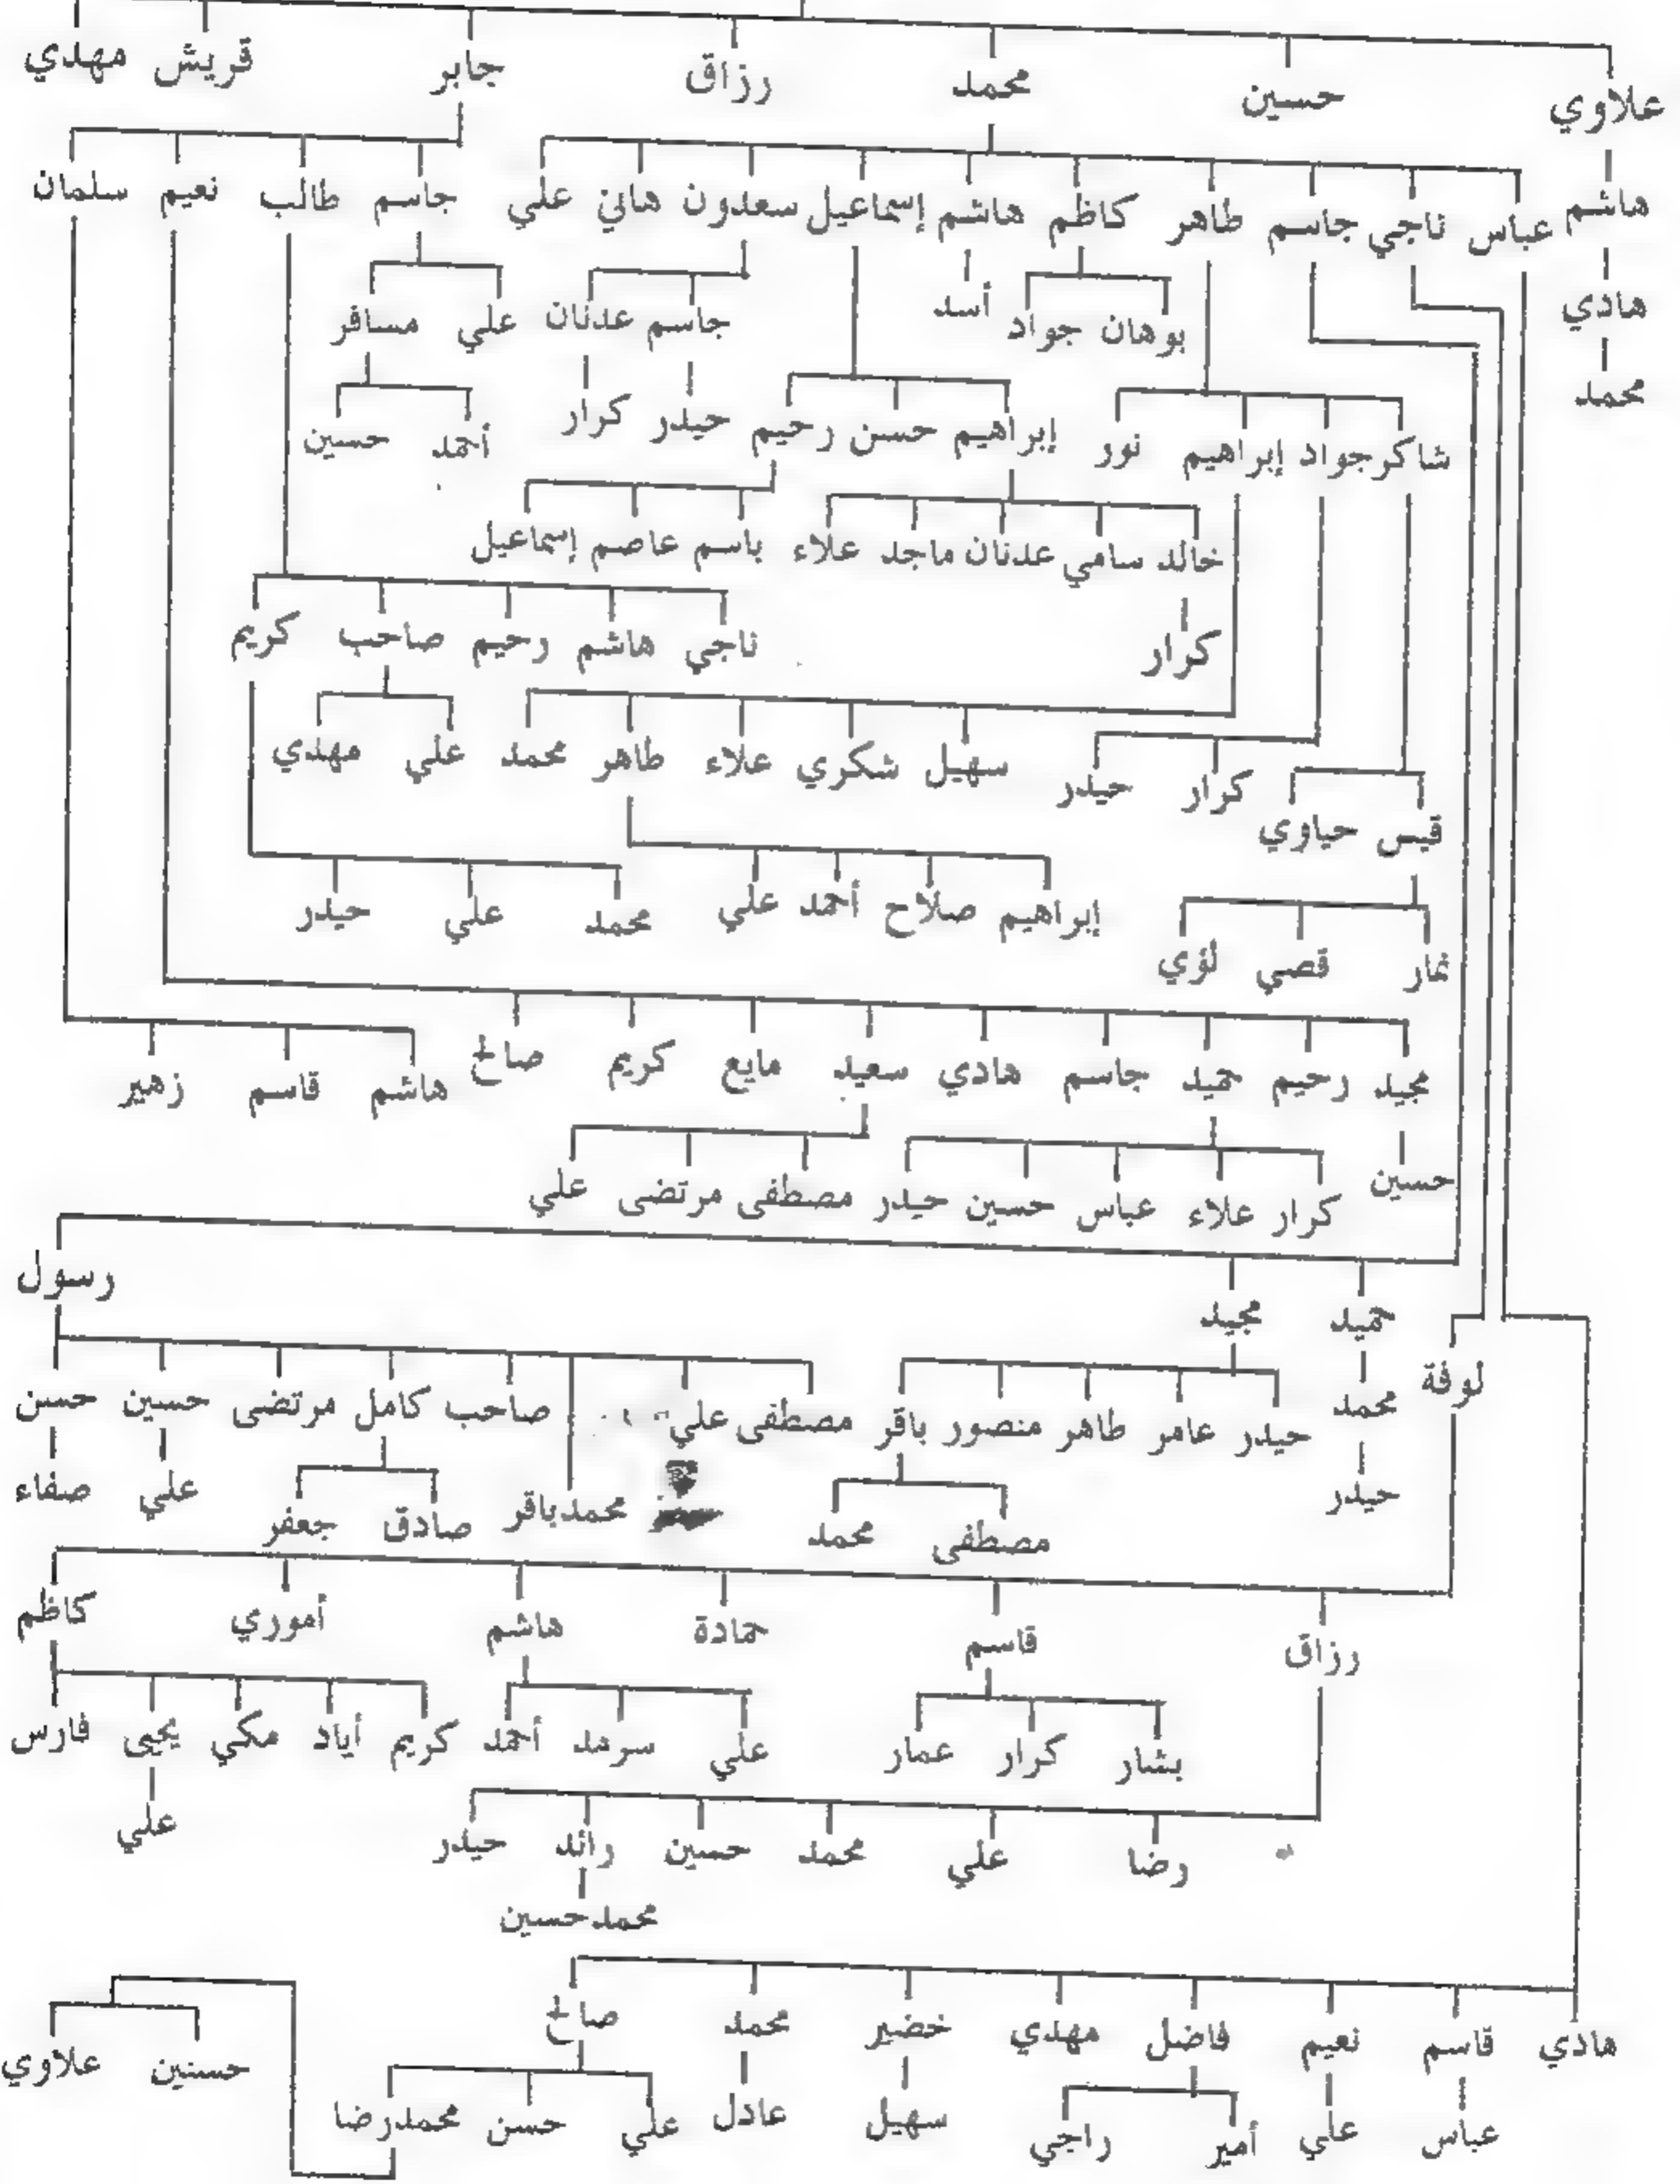 علاوي حسين محمد رزاق جابر قريش مهدي
هاشم عباس ناجي جاسم طاهر كاظم هاشم إسماعيل سعدون هاني علي جاسم طالب نعيم سلمان
هادي بوهان جواد أسد جاسم عدنان علي مسافر
محمد شاكر جواد إبراهيم نور إبراهيم حسن رحيم حيدر كرار أحمد حسين
خالد سامي عدنان ماجد علاء باسم عاصم إسماعيل
كرار ناجي هاشم رحيم صاحب كريم
قيس حياوي كرار حيدر سهيل شكري علاء طاهر محمد علي مهدي
لؤي قصي إبراهيم صلاح أحمد علي محمد علي حيدر
مجيد رحيم حميد جاسم هادي سعيد مايع كريم صالح هاشم قاسم زهير
حسين كرار علاء عباس حسين حيدر مصطفى مرتضى علي
حميد مجيد رسول
لوفة محمد حيدر عامر طاهر منصور باقر مصطفى علي صاحب كامل مرتضى حسين حسن
حيدر مصطفى محمد محمدباقر صادق جعفر علي صفاء
رزاق قاسم حمادة هاشم أموري كاظم
بشار كرار عمار علي سرمد أحمد كريم أياد مكي يحيى فارس
رضا علي محمد حسين رائد حيدر علي
محمدحسين
هادي قاسم نعيم فاضل مهدي خضير محمد صالح حسنين علاوي
عباس علي أمير راجي سهيل عادل علي حسن محمدرضا